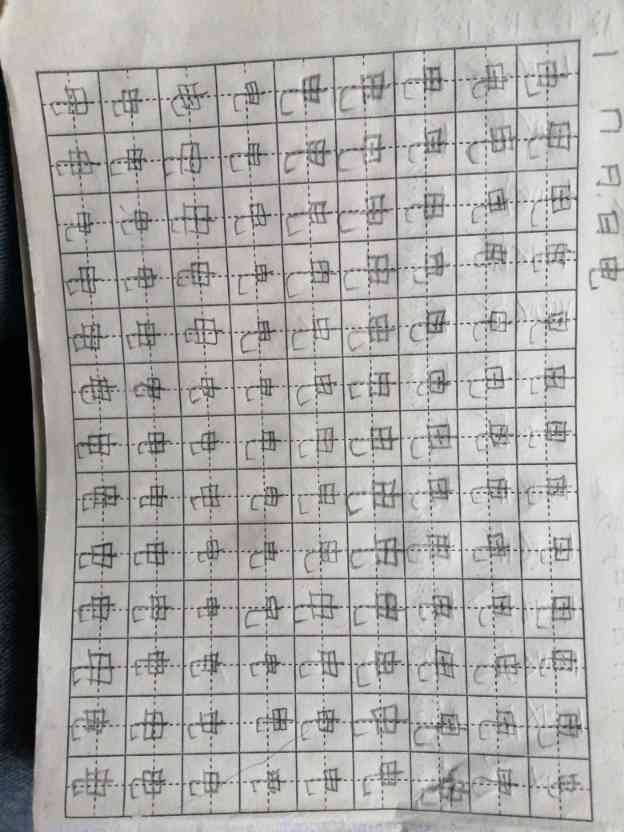 丨 冂 日 日 电
电电电电电电电电电电电电电
电电电电电电电电电电电电电
电电电电电电电电电电电电电
电电电电电电电电电电电电电
电电电电电电电电电电电电电
电电电电电电电电电电电电电
电电电电电电电电电电电电电
电电电电电电电电电电电电电
电电电电电电电电电电电电电